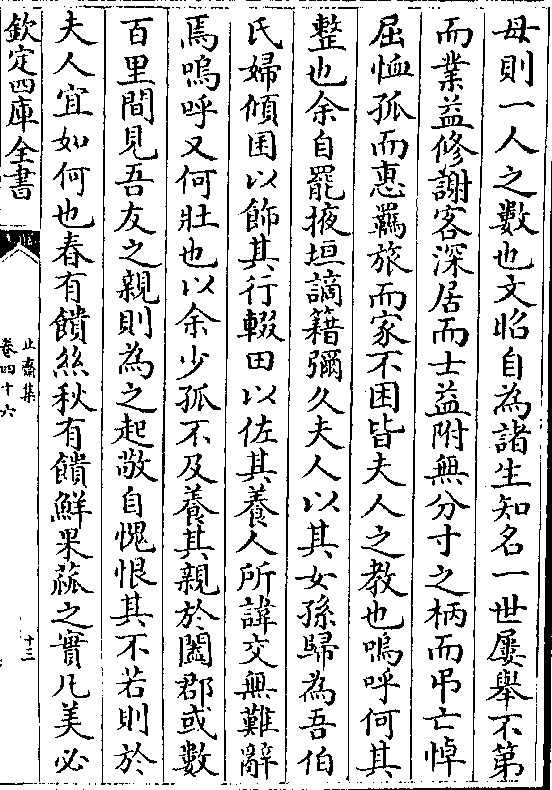 母則一人之數也文昭自為諸生知名一世屢舉不第
而業益修謝客深居而士益附無分寸之柄而弔亡悼
屈恤孤而惠羈旅而家不困皆夫人之教也嗚呼何其
整也余自罷掖垣謫籍彌久夫人以其女孫歸為吾伯
氏婦傾囷以飾其行輟田以佐其養人所諱交無難辭
焉嗚呼又何壯也以余少孤不及養其親於闔郡或數
百里間見吾友之親則為之起敬自愧恨其不若則於
夫人宜如何也春有饋絲秋有饋鮮果蓏之實凡美必
欽定四庫全書
止齋集
卷四十六
十三